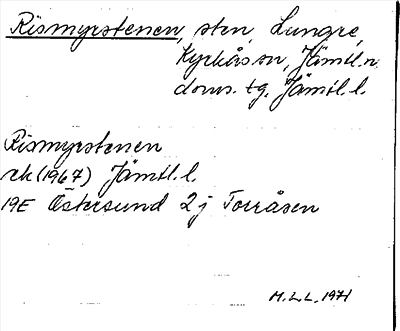 Rismyrstenen, sten, Lungre,
Kyrkås sn, Jämtl.n.
doms. tg, Jämtl. l.
Rismyrstenen
rk (1967) Jämtl. l.
19E Östersund 2j Torråsen
M.L.L. 1971